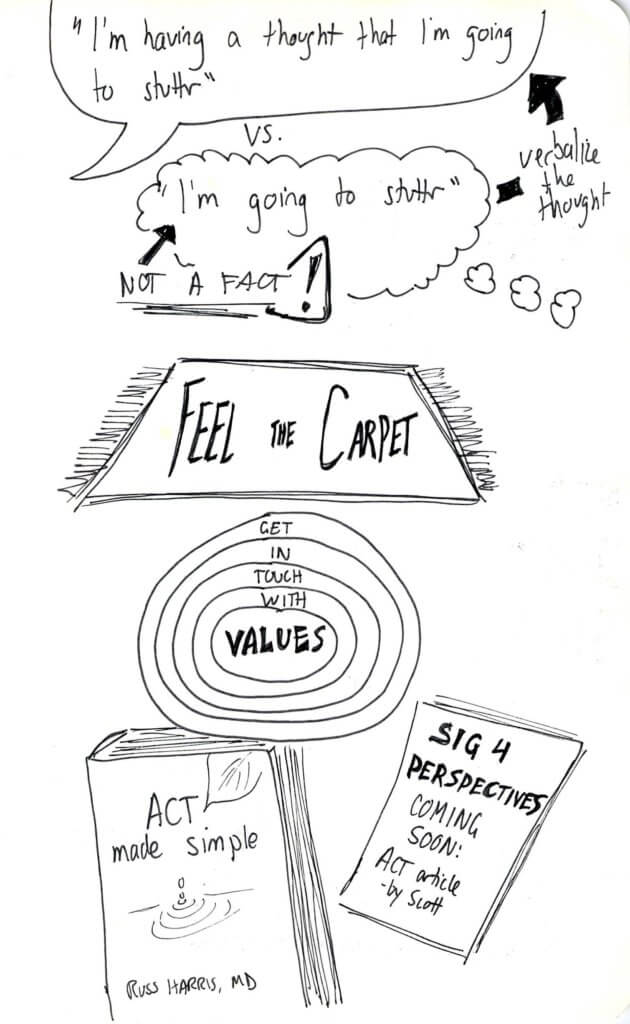 "I'm having a thought that I'm going
to stuttr"
VS.
verbalize
the
thought
"I'm going to stuttr"
NOT A FACT !
FEEL THE CARPET
GET
IN
TOUCH
WITH
VALUES
ACT
made simple
RUSS HARRIS, MD
SIG 4
PERSPECTIVES
COMING
SOON:
ACT article
-by Scott